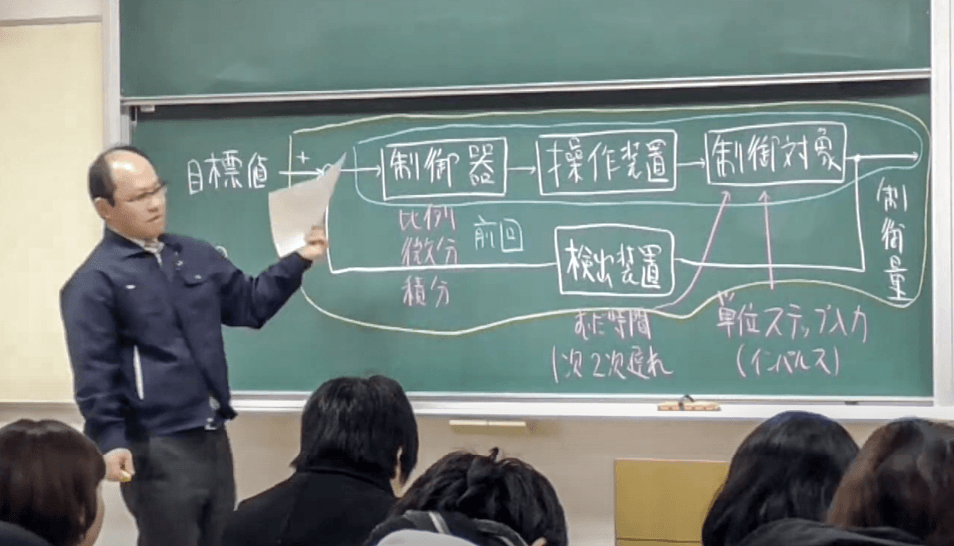 目標値
+
制御器
操作装置
制御対象
制御量
比例
微分
積分
前回
検出装置
むだ時間
1次2次遅れ
単位ステップ入力
(インパルス)